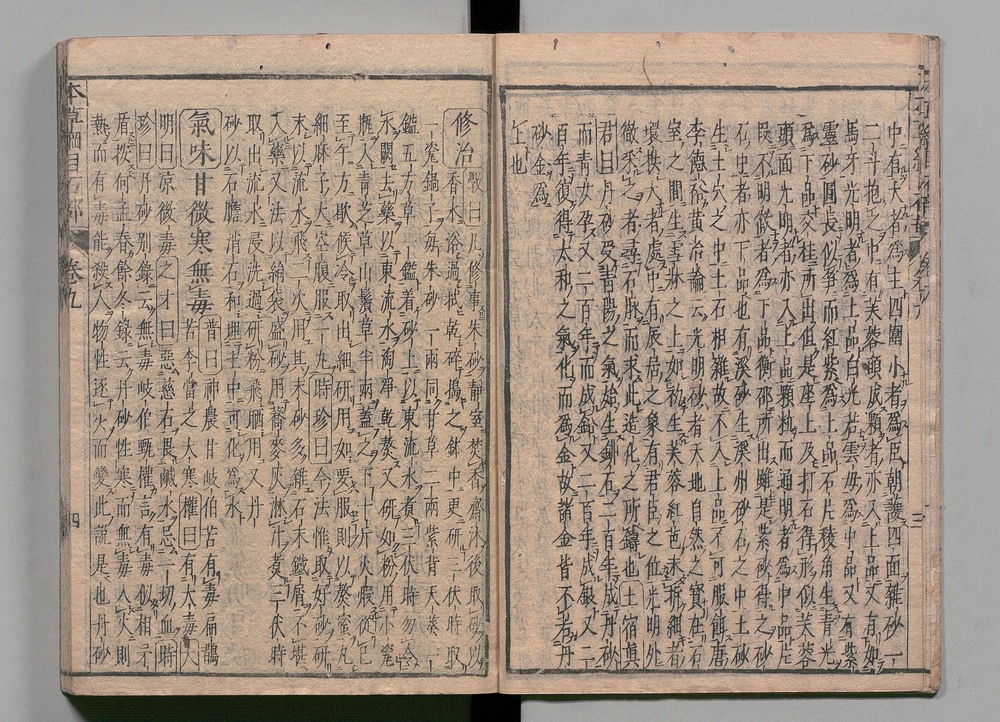 中有大者為生四圍小者為臣朝護四面雜砂一
二斗抱之中有芙蓉頭成顆者亦入上品又有如
馬牙光明者為上品白光若雲母為中品又有紫
靈砂圓長似笋而紅紫為上品石片稜角生青光
為下品交桂所出但是座上及打石得形似芙蓉
頭面光明者亦入上品顆粒而通明者為中品片
段不明徹者為下品衡邵所出雖是紫砂得之砂
石中者亦下品也有溪砂生溪州砂石之中土砂
生土穴之中土石相雜故不入上品不可服餌唐
李德裕黃冶論云光明砂者天地自然之寶在石
室之間生雪牀之上如初生芙蓉紅芭未拆細者
環拱大者處中有辰居之象有君臣之位光明外
徹采之者尋石脈而求此造化之所鑄也土宿真
君曰丹砂受青陽之氣始生鉱石二百年成丹砂
而青女孕又二百年而成鉛又二百年成銀又二
百年復得太和之氣化而為金故諸金皆不若丹
砂金為
上也
修治 斅曰凡修事朱砂靜室焚香齋沐後取砂以
香水浴過拭乾碎搗之鉢中更研三伏時取
一瓷鍋子每朱砂一兩同甘草二兩紫背天葵一
鎰五方草一鎰着砂上以東流水煮三伏時勿令
水闕去藥以東流水淘淨乾熬又研如粉用小瓷
瓶入青芝草山鬚草半兩蓋之下十斤火煅從巳
至子方歇候冷取出細研用如要服則以熬蜜丸
細麻子大空腹服一丸 時珍曰今法惟取好砂研
末以流水飛三次用其末砂多雜石末鐵屑不堪
入藥又法以絹袋盛砂用蕎麥灰淋汁煑三伏時
取出流水浸洗過研粉飛晒用又丹
砂以石膽消石和埋土中可化為水
氣味 甘微寒無毒 普曰神農甘岐伯苦有毒扁鵲
苦李當之大寒 權曰有大毒 大
明曰凉微毒 之才曰惡慈石畏鹹水忌一切血 時
珍曰丹砂別錄云無毒岐伯甄權言有毒似相矛
盾按何孟春餘冬錄云丹砂性寒而無毒入火則
熱而有毒能殺人物性逐火而變此說是也丹砂
本草綱目石部 卷九 四